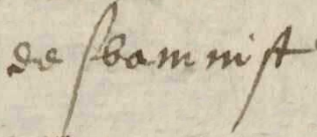 de sbamnist